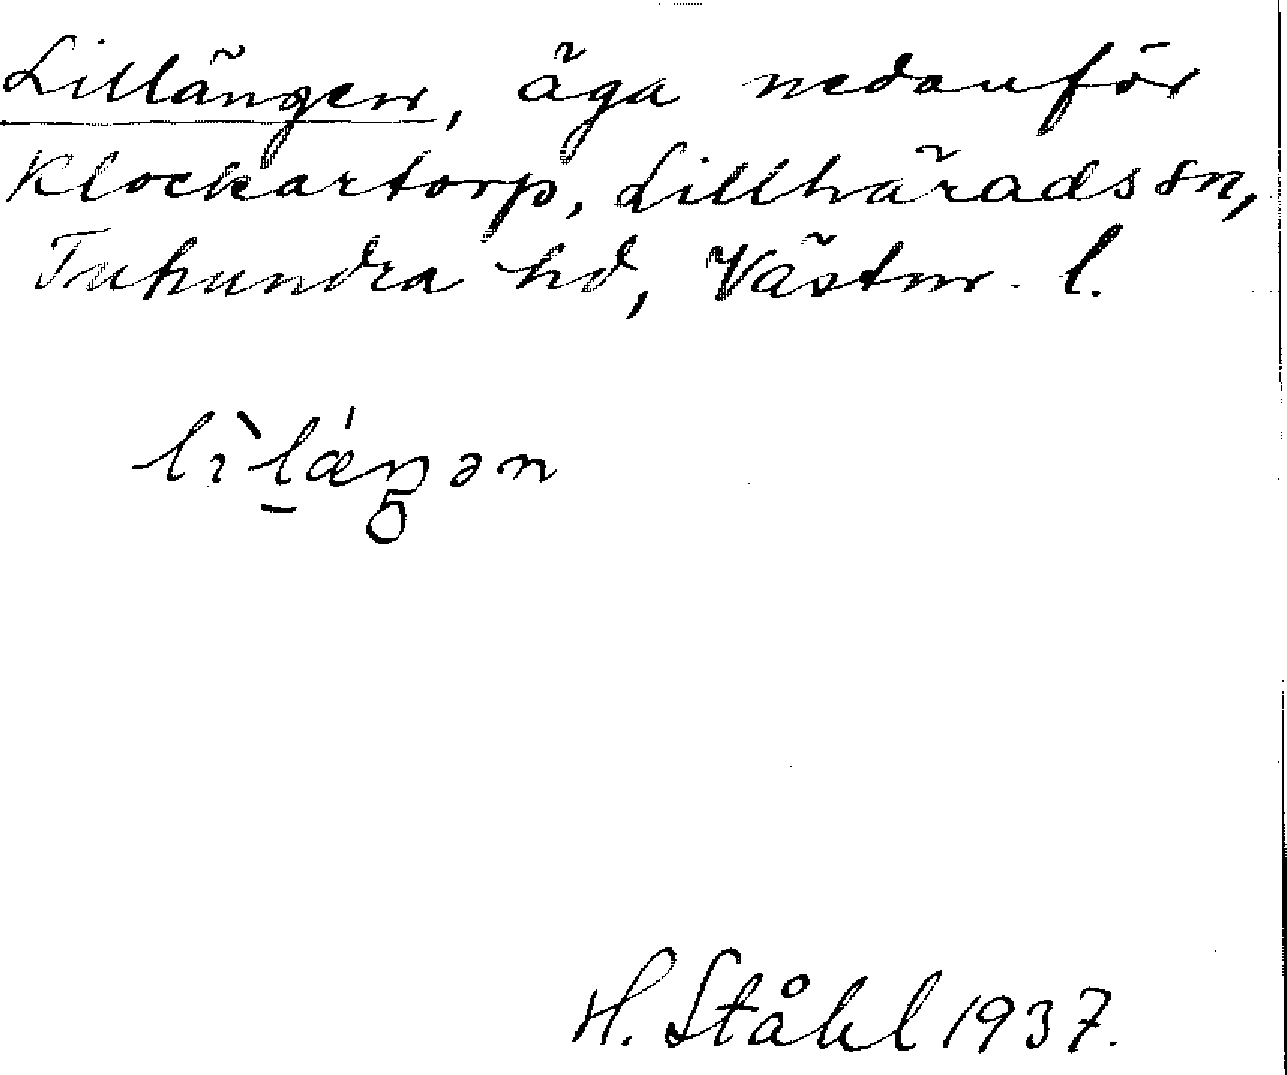 Lillängen, äga nedanför
Klockartorp, Lillhärads sn,
Tuhundra hd, Västm. l.
lìlæ´ŋən
H. Ståhl 1937.